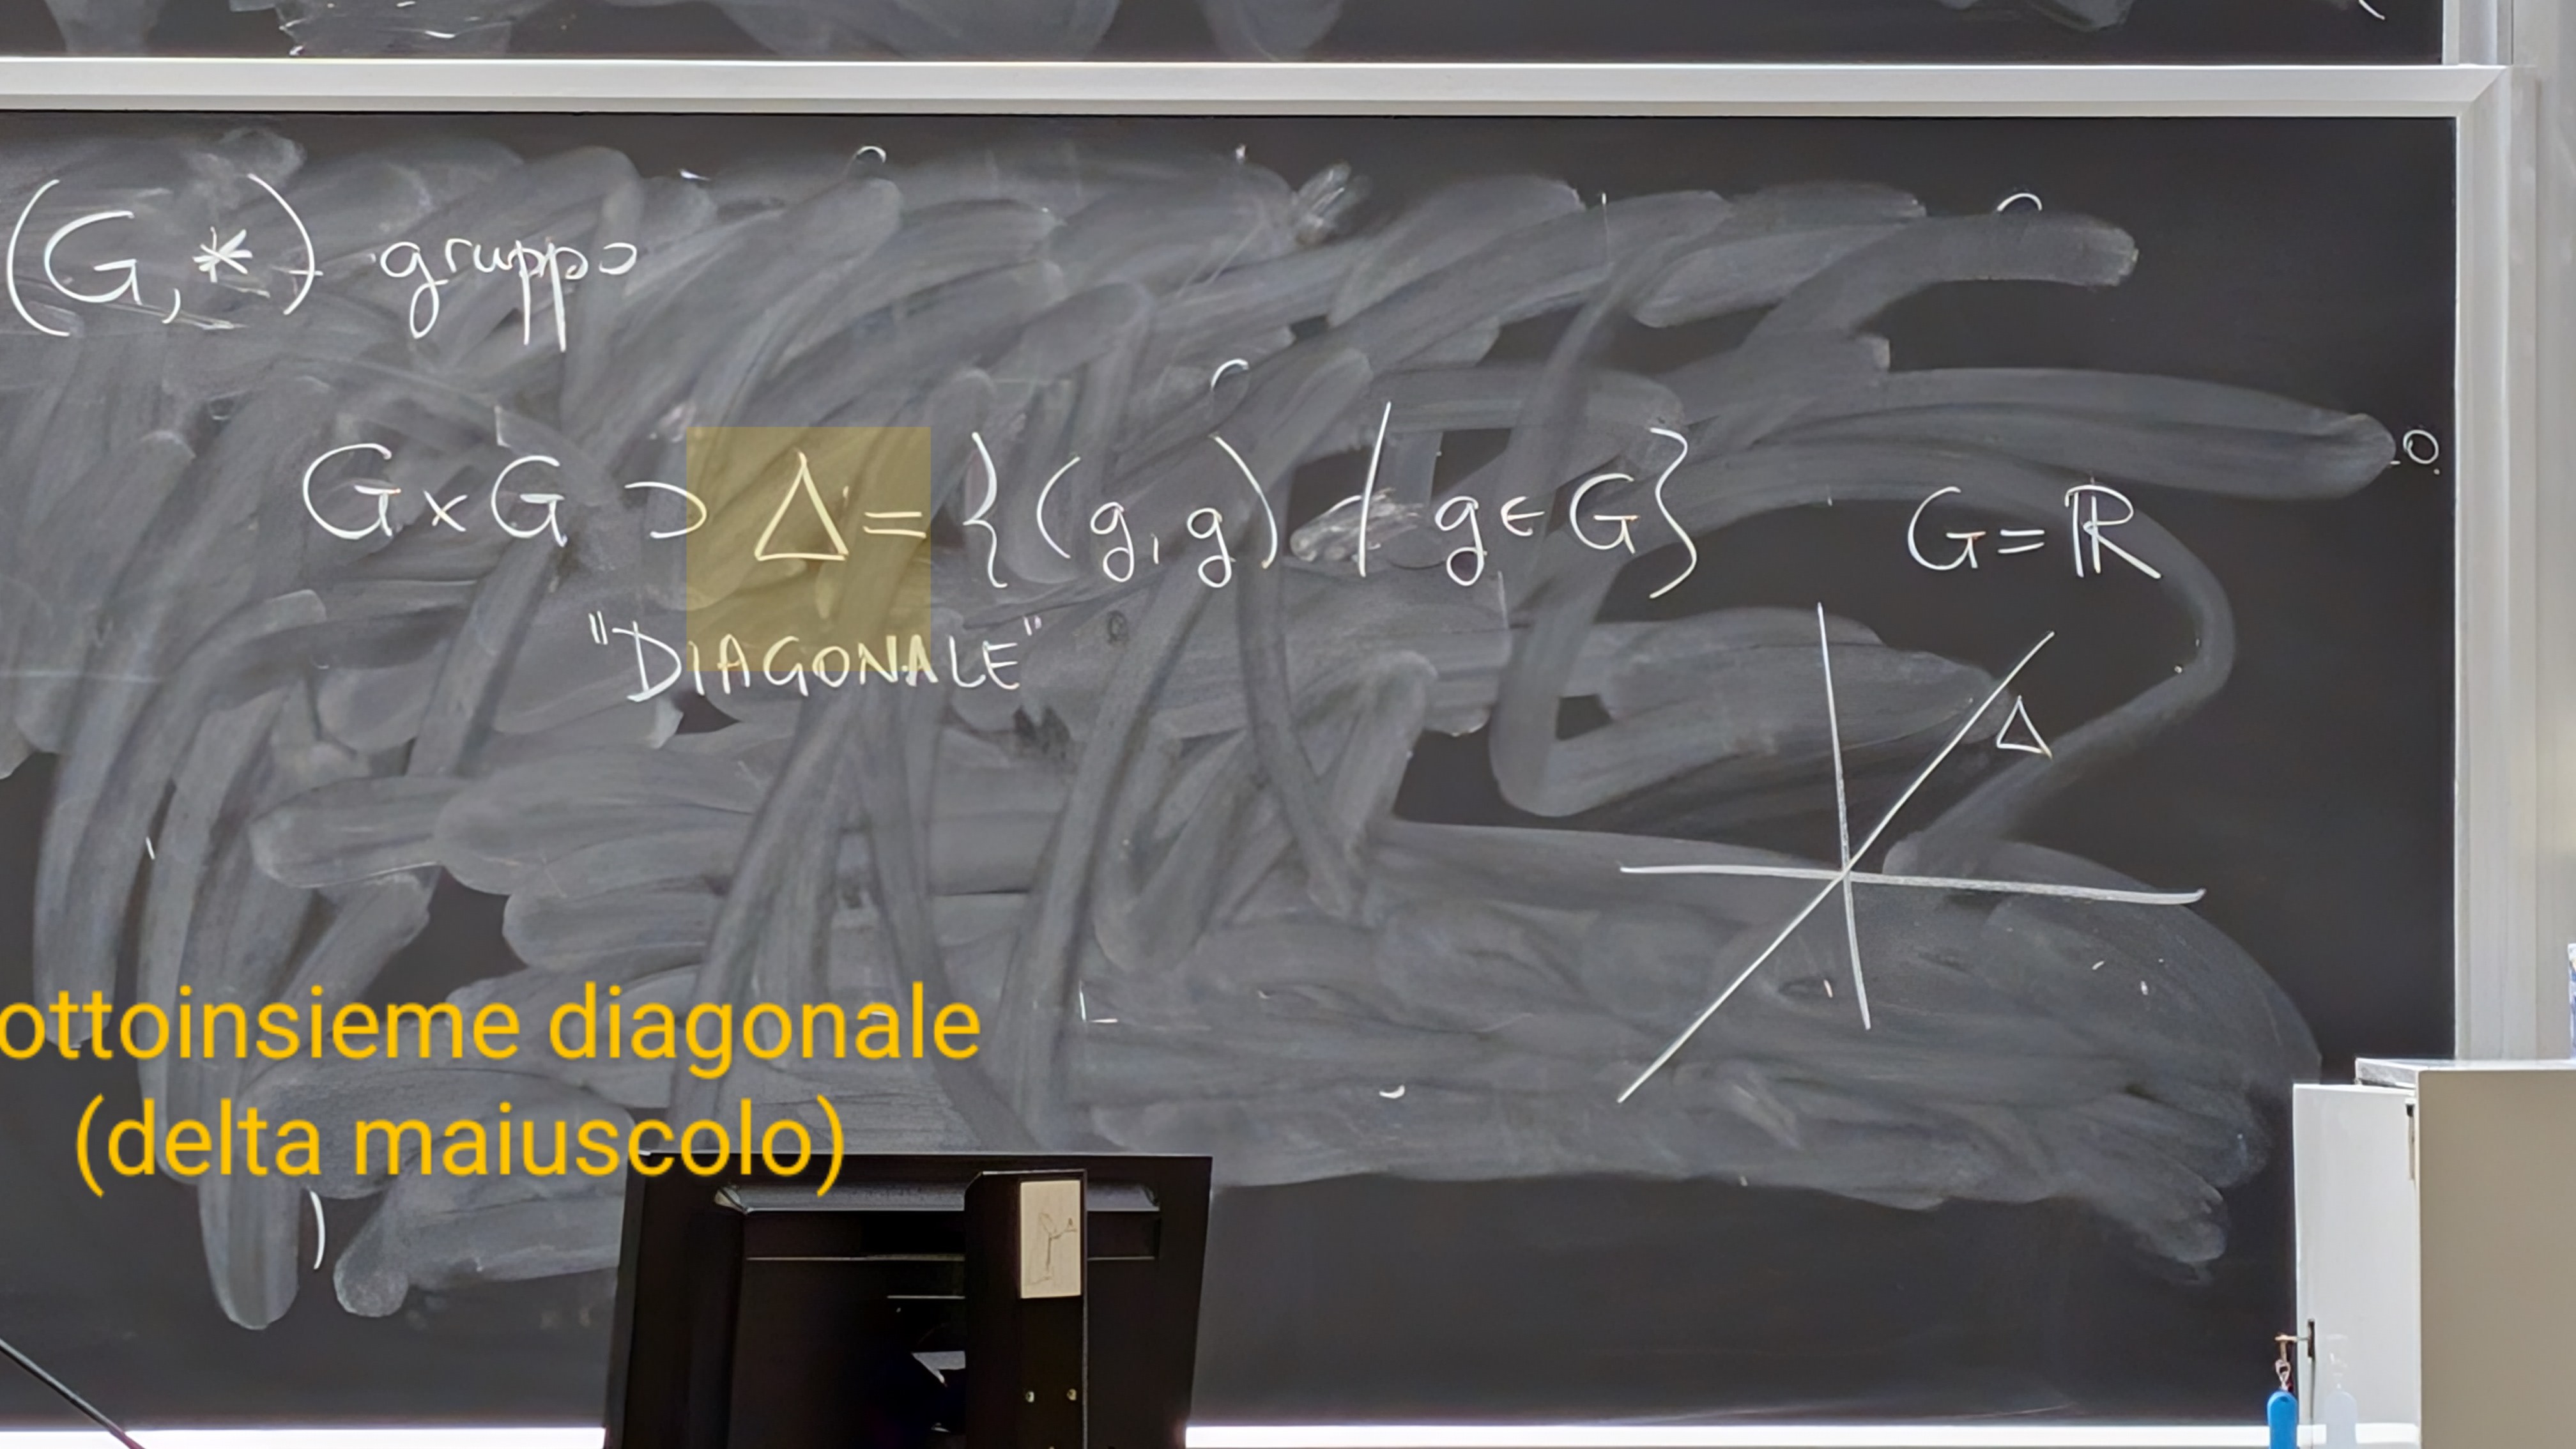 (G,*) gruppo
G×G ⊃ Δ = {(g,g) / g∈G}
"DIAGONALE"
G=ℝ
Δ
ottoinsieme diagonale
(delta maiuscolo)